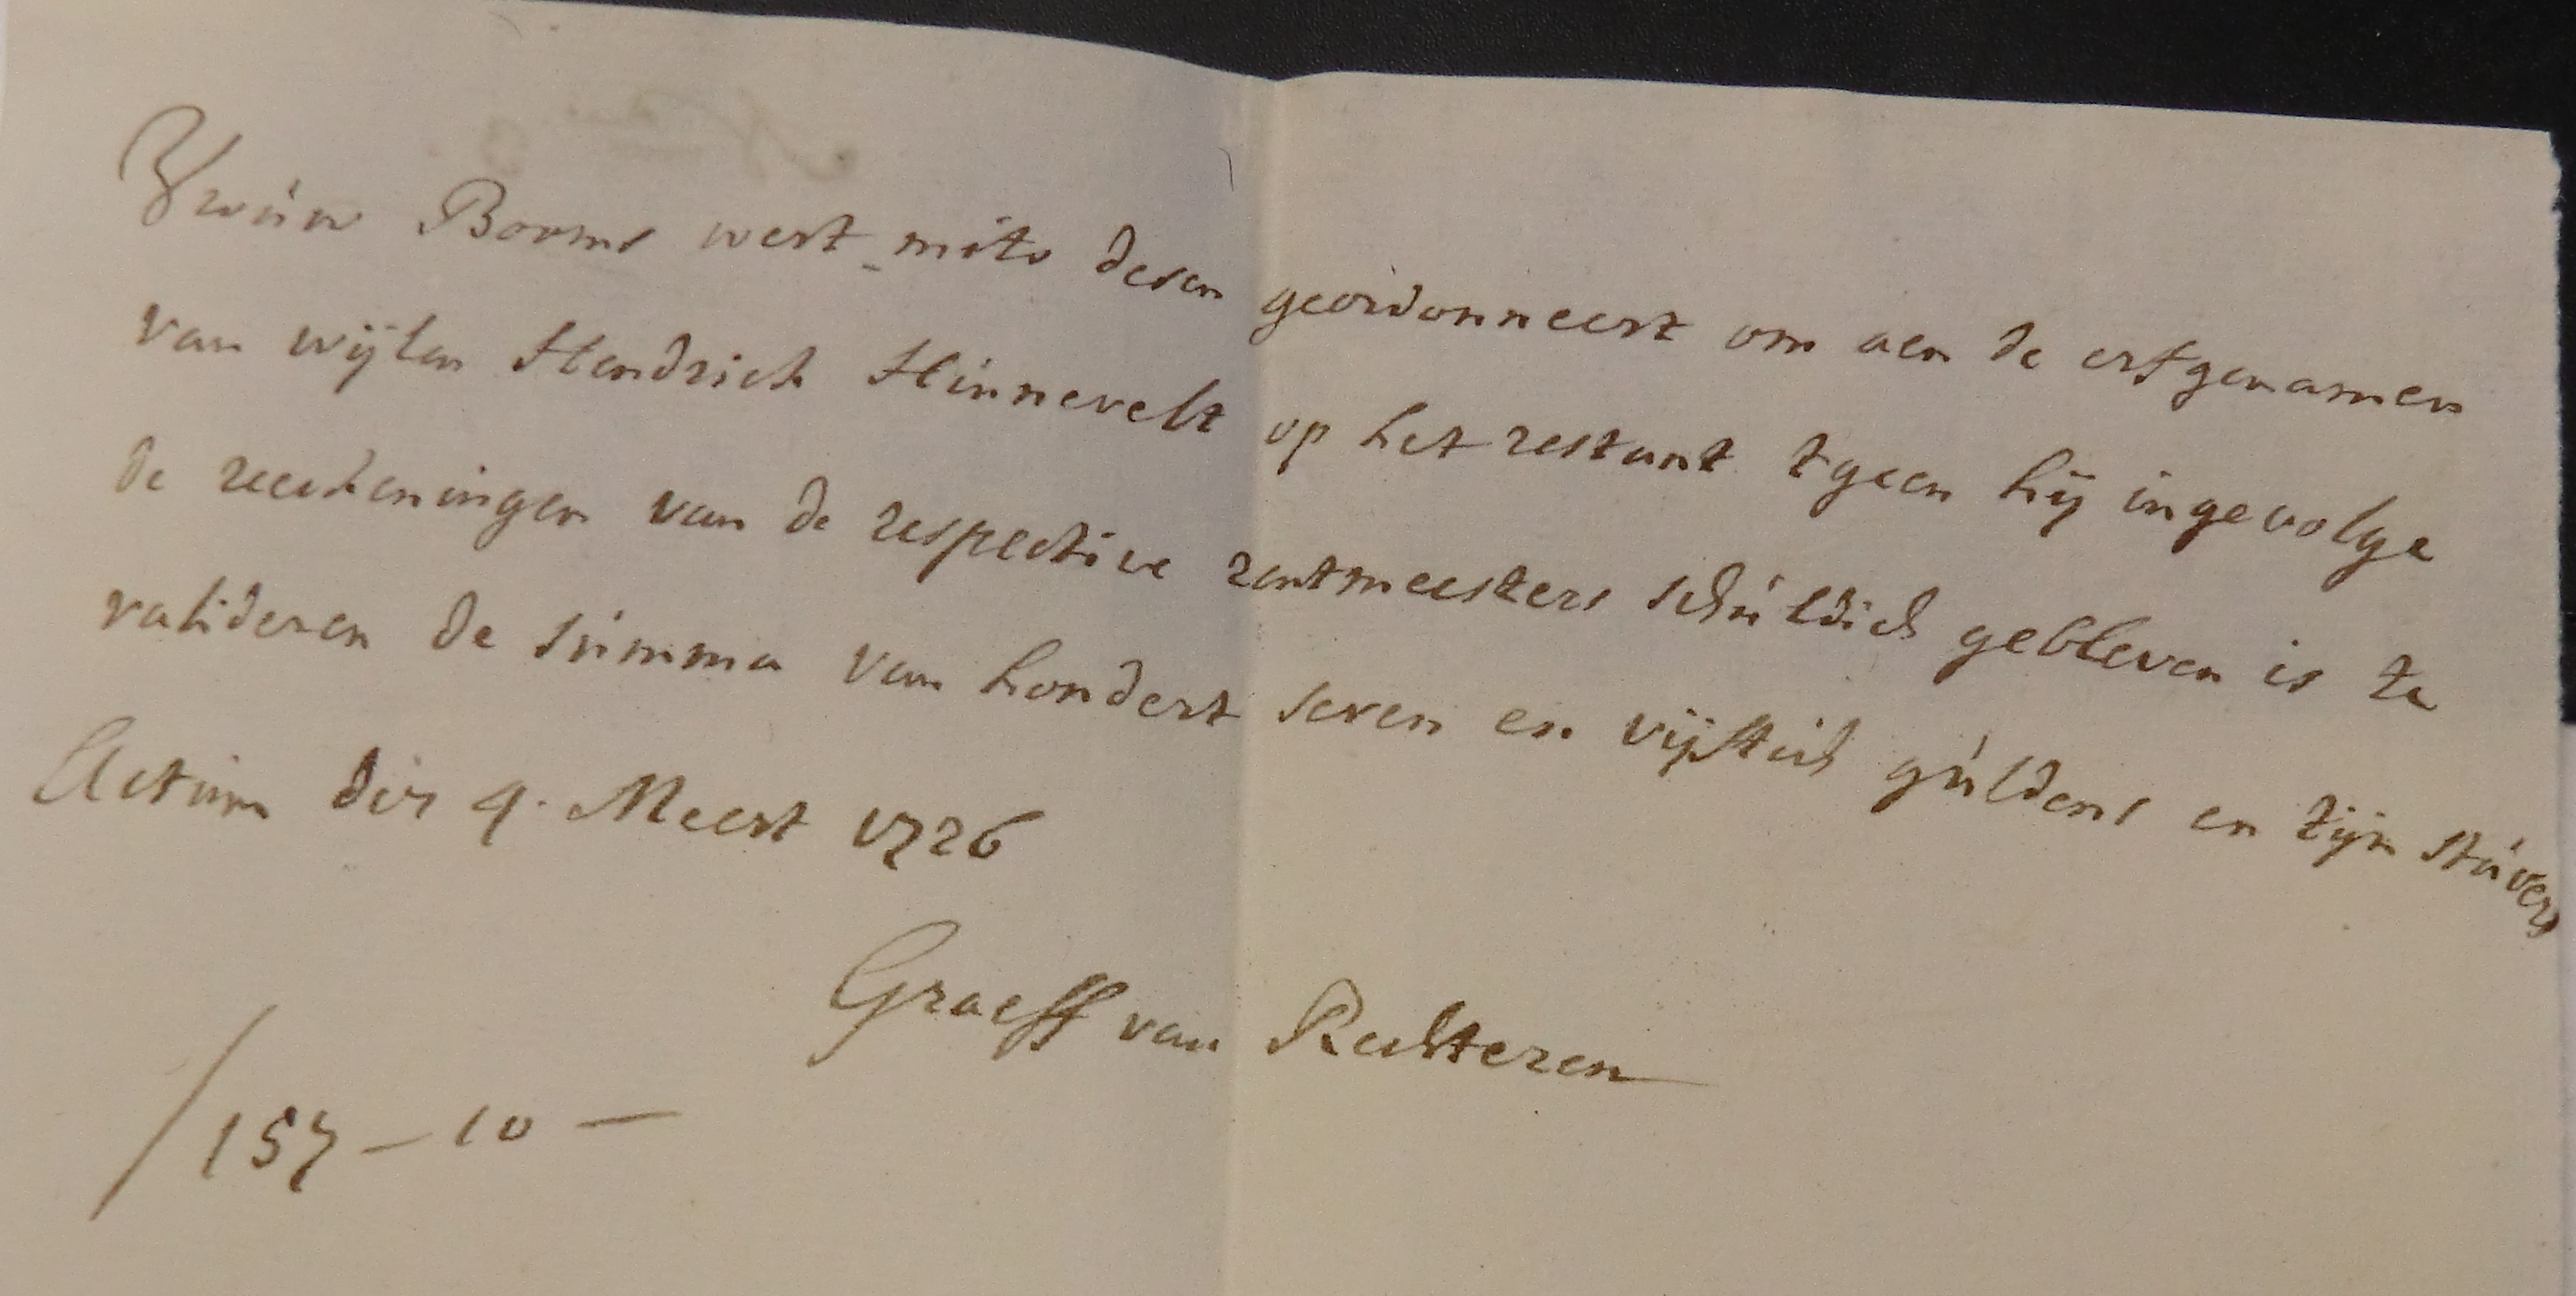 Vrúw Booms wert mits desen geordonneert om aen de erfgenamen
van wijlen Hendrich Hinnevelt op het restant tgeen hij ingevolge
de reecheningen van de respective rentmeesters schúldich gebleven is te
valideren de súmma van hondert seven en vijftich gúldens en tijn stúvers
Actum dis 4. Meert 1726
Graeff van Rechteren
/157 – 10 –